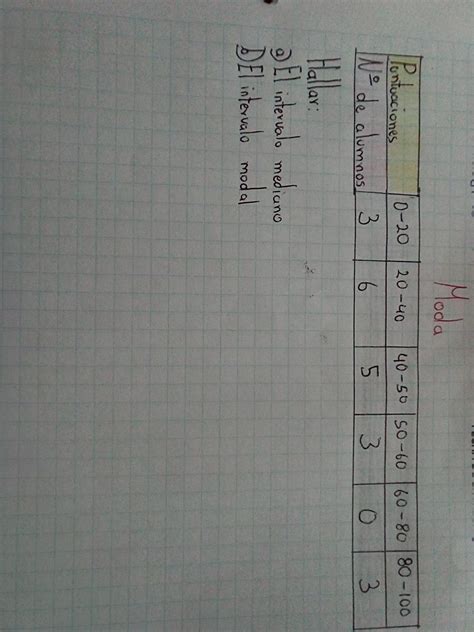 Moda
Puntuaciones 0-20 20-40 40-50 50-60 60-80 80-100
Nº de alumnos 3 6 5 3 0 3
Hallar:
a) El intervalo mediano
b) El intervalo modal